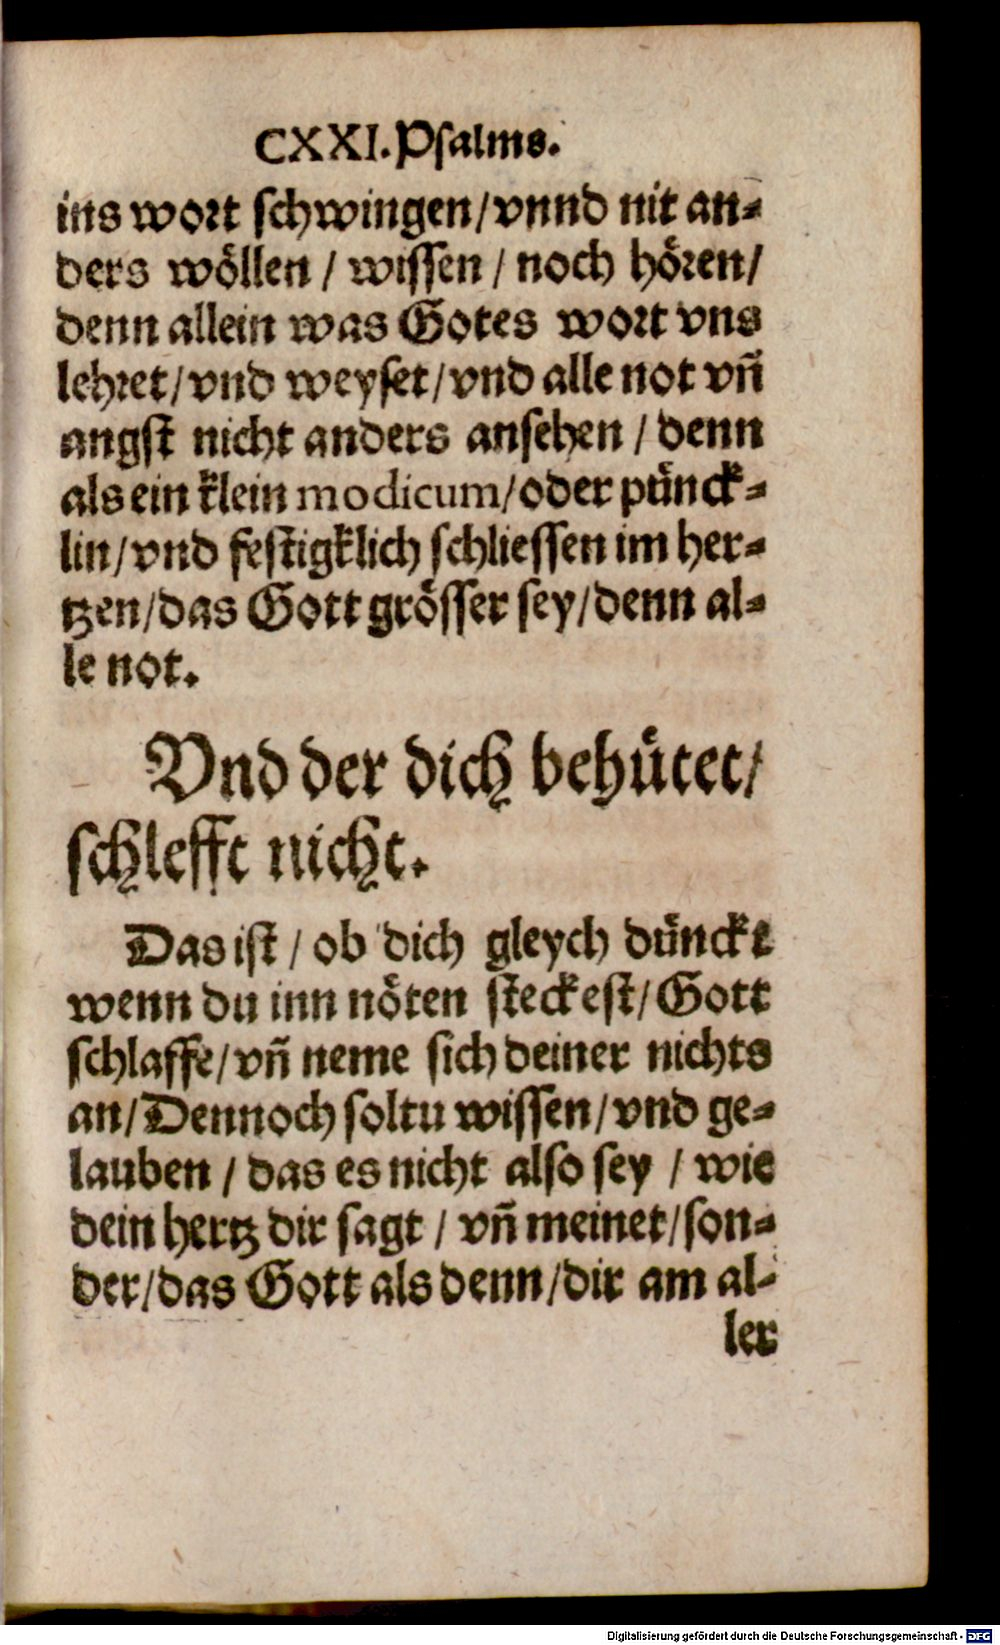 CXXI. Psalms.
ins wort schwingen/vnnd nit an⸗
ders wöllen / wissen / noch hören/
denn allein was Gotes wort vns
lehret/vnd weyset/vnd alle not vñ
angst nicht anders ansehen / denn
als ein klein modicum/oder pünck⸗
lin/vnd festigklich schliessen im her⸗
tzen/das Gott grösser sey/denn al⸗
le not.
Vnd der dich behütet/
schlefft nicht.
Das ist / ob dich gleych dünckt
wenn du inn nöten steckest/Gott
schlaffe/vñ neme sich deiner nichts
an/Dennoch soltu wissen/vnd ge⸗
lauben / das es nicht also sey / wie
dein hertz dir sagt / vñ meinet/son⸗
der/das Gott als denn/dir am al⸗
ler
Digitalisierung gefördert durch die Deutsche Forschungsgemeinschaft - DFG